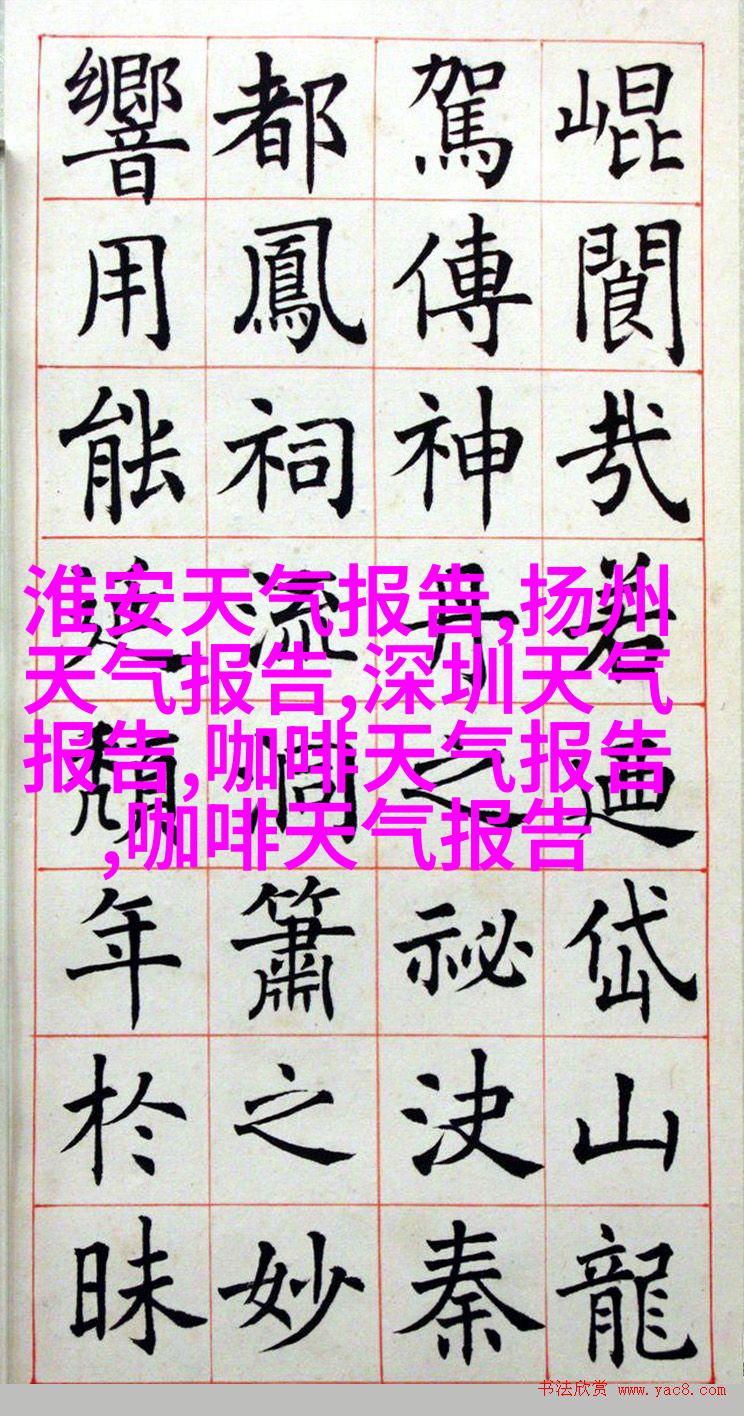 崐閬㢤若迺岱山龍
駕傳神丹之祕決秦
都鳳祠流洞簫之妙
響用能延頹年於昧
淮安天气报告,扬州
天气报告,深圳天气
报告,咖啡天气报告
,咖啡天气报告
书法欣赏 www.yac8.com